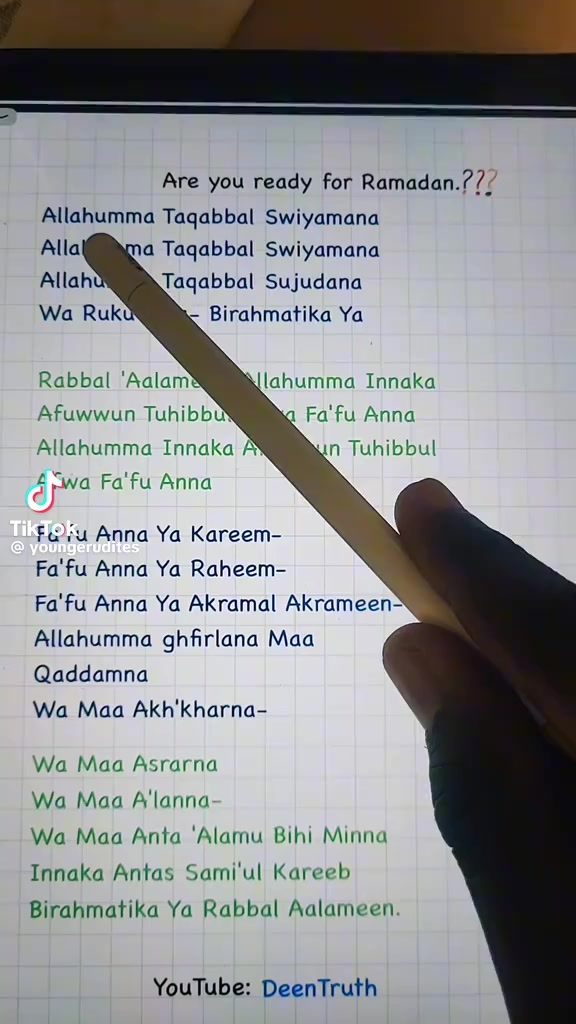 Are you ready for Ramadan.???
Allahumma Taqabbal Swiyamana
ma Taqabbal Swiyamana
Taqabbal Sujudana
Wa - Birahmatika Ya
Rabbal Allahumma Innaka
Afuwwun Fa'fu Anna
Allahumma Innaka Tuhibbul
Fa'fu Anna
TikTok
@ youngerudites
Fa'fu Anna Ya Kareem-
Fa'fu Anna Ya Raheem-
Fa'fu Anna Ya Akramal Akrameen-
Allahumma ghfirlana Maa
Qaddamna
Wa Maa Akh'kharna-
Wa Maa Asrarna
Wa Maa A'lanna-
Wa Maa Anta 'Alamu Bihi Minna
Innaka Antas Sami'ul Kareeb
Birahmatika Ya Rabbal Aalameen.
YouTube: DeenTruth